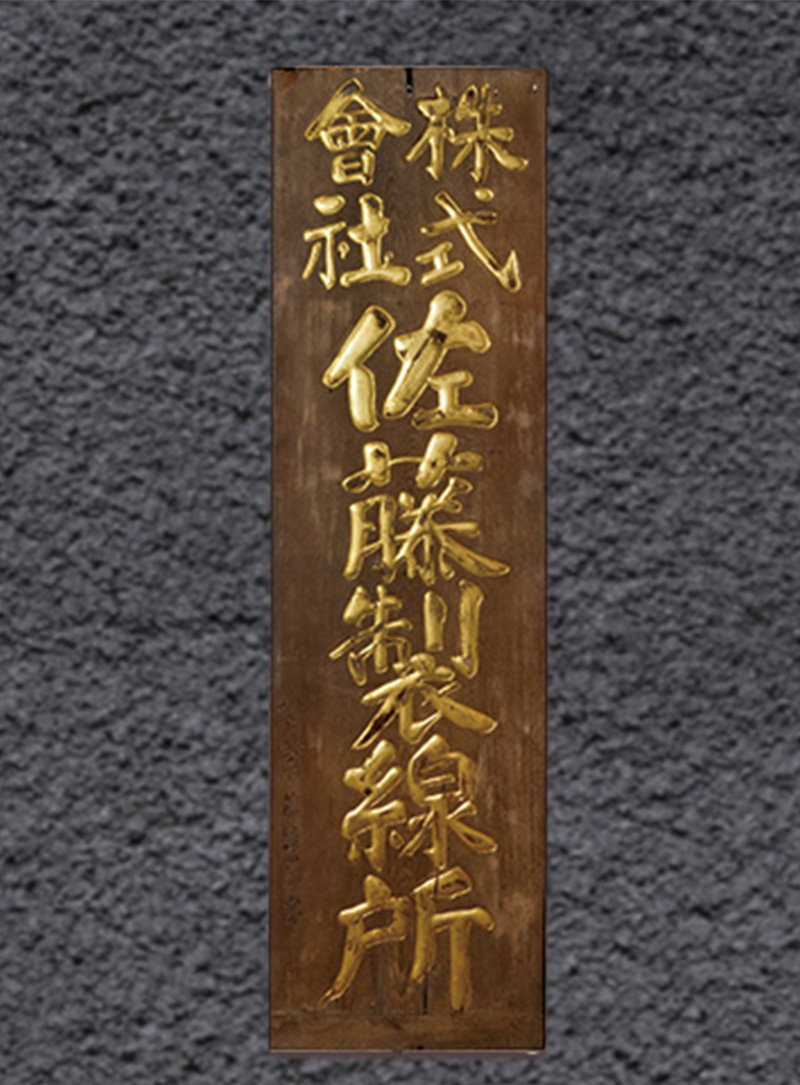 株式
會社
佐藤製線所